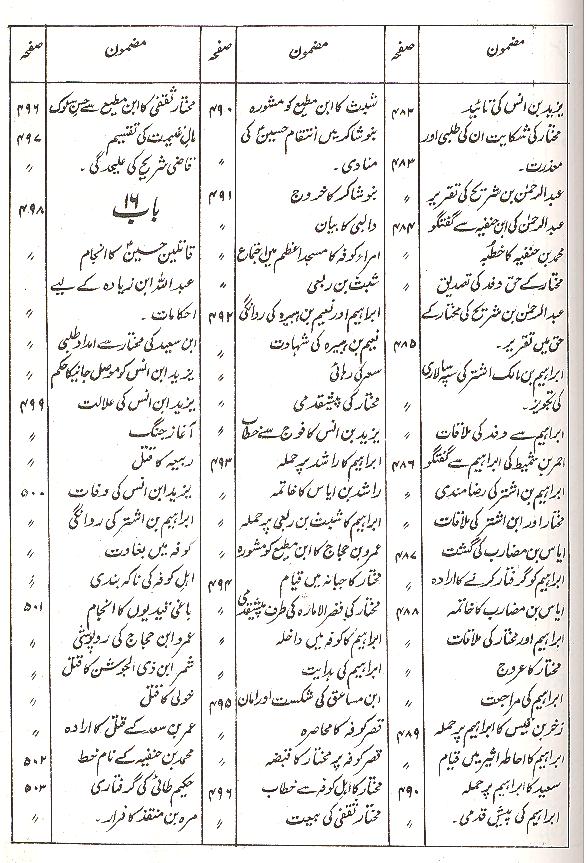 مضمون صفحہ مضمون صفحہ مضمون صفحہ
یزید بن انس کی تائید ۴۸۲
مختار کی شکایت ان کی طلبی اور
معذرت۔ ۴۸۳
عبدالرحمٰن بن شریح کی تقریر 〃
عبدالرحمٰن کی ابن حنفیہ سے گفتگو ۴۸۴
محمد بن حنفیہ کا خطبہ 〃
مختار کے حق وفد کی تصدیق 〃
عبدالرحمٰن بن شریح کی مختار کے
حق میں تقریر۔ ۴۸۵
ابراہیم بن مالک اشتر کی سپہ سالاری
کی تجویز۔ 〃
ابراہیم سے وفد کی ملاقات 〃
احمر بن شمیط کی ابراہیم سے گفتگو ۴۸۶
ابراہیم بن اشتر کی رضامندی 〃
مختار اور ابن اشتر کی ملاقات 〃
ایاس بن مضارب کی گشت ۴۸۷
ابراہیم کو گرفتار کرنے کا ارادہ 〃
ایاس بن مضارب کا خاتمہ ۴۸۸
ابراہیم اور مختار کی ملاقات 〃
مختار کا عروج 〃
ابراہیم کی مراجعت 〃
زحر بن قیس کا ابراہیم پر حملہ ۴۸۹
ابراہیم کا احاطہ اثیر میں قیام 〃
سعید کا ابراہیم پر حملہ ۴۹۰
ابراہیم کی پیش قدمی۔ 〃
شبث کا ابن مطیع کو مشورہ ۴۹۰
بنو شاکر میں انتقام حسینؑ کی
منادی۔ 〃
بنو شاکر کا خروج ۴۹۱
والبی کا بیان 〃
امراء کوفہ کا مسجد اعظم میں اجتماع 〃
شبث بن ربعی 〃
ابراہیم اور نعیم بن ہبیرہ کی روانگی ۴۹۲
نعیم بن ہبیرہ کی شہادت 〃
سعر کی رہائی 〃
مختار کی پیشقدمی 〃
یزید بن انس کا فوج سے خطاب 〃
ابراہیم کا راشد پر حملہ ۴۹۳
راشد بن ایاس کا خاتمہ 〃
ابراہیم کا شبث بن ربعی پر حملہ 〃
عمرو بن حجاج کا ابن مطیع کو مشورہ 〃
مختار کا جبانہ میں قیام ۴۹۴
مختار کی قصر الامارہ کی طرف پیشقدمی 〃
ابراہیم کا کوفہ میں داخلہ 〃
ابراہیم کی ہدایت 〃
ابن مساحق کی شکست اور امان ۴۹۵
قصر کوفہ کا محاصرہ 〃
قصر کوفہ پر مختار کا قبضہ 〃
مختار کا اہل کوفہ سے خطاب ۴۹۶
مختار ثقفی کی بیعت 〃
مختار ثقفی کا ابن مطیع سے حسن سلوک ۴۹۶
مال غنیمت کی تقسیم ۴۹۷
قاضی شریح کی علیحدگی۔ 〃
باب ۱۶ ۴۹۸
قاتلین حسینؑ کا انجام 〃
عبداللہ ابن زیادہ کے لیے
احکامات۔ 〃
ابن سعید کی مختار سے امداد طلبی 〃
یزید ابن انس کو موصل جانیکا حکم 〃
یزید ابن انس کی علالت ۴۹۹
آغاز جنگ 〃
ربیعہ کا قتل 〃
یزید ابن انس کی وفات ۵۰۰
ابراہیم بن اشتر کی روانگی 〃
کوفہ میں بغاوت 〃
اہل کوفہ کی ناکہ بندی 〃
باغی قیدیوں کا انجام ۵۰۱
عمرو ابن حجاج کی روپوشی 〃
شمر ابن ذی الجوشن کا قتل 〃
خولی کا قتل 〃
عمر بن سعد کے قتل کا ارادہ 〃
محمد بن حنفیہ کے نام خط ۵۰۲
حکیم طائی کی گرفتاری ۵۰۳
مرہ بن منقذ کا فرار۔ 〃